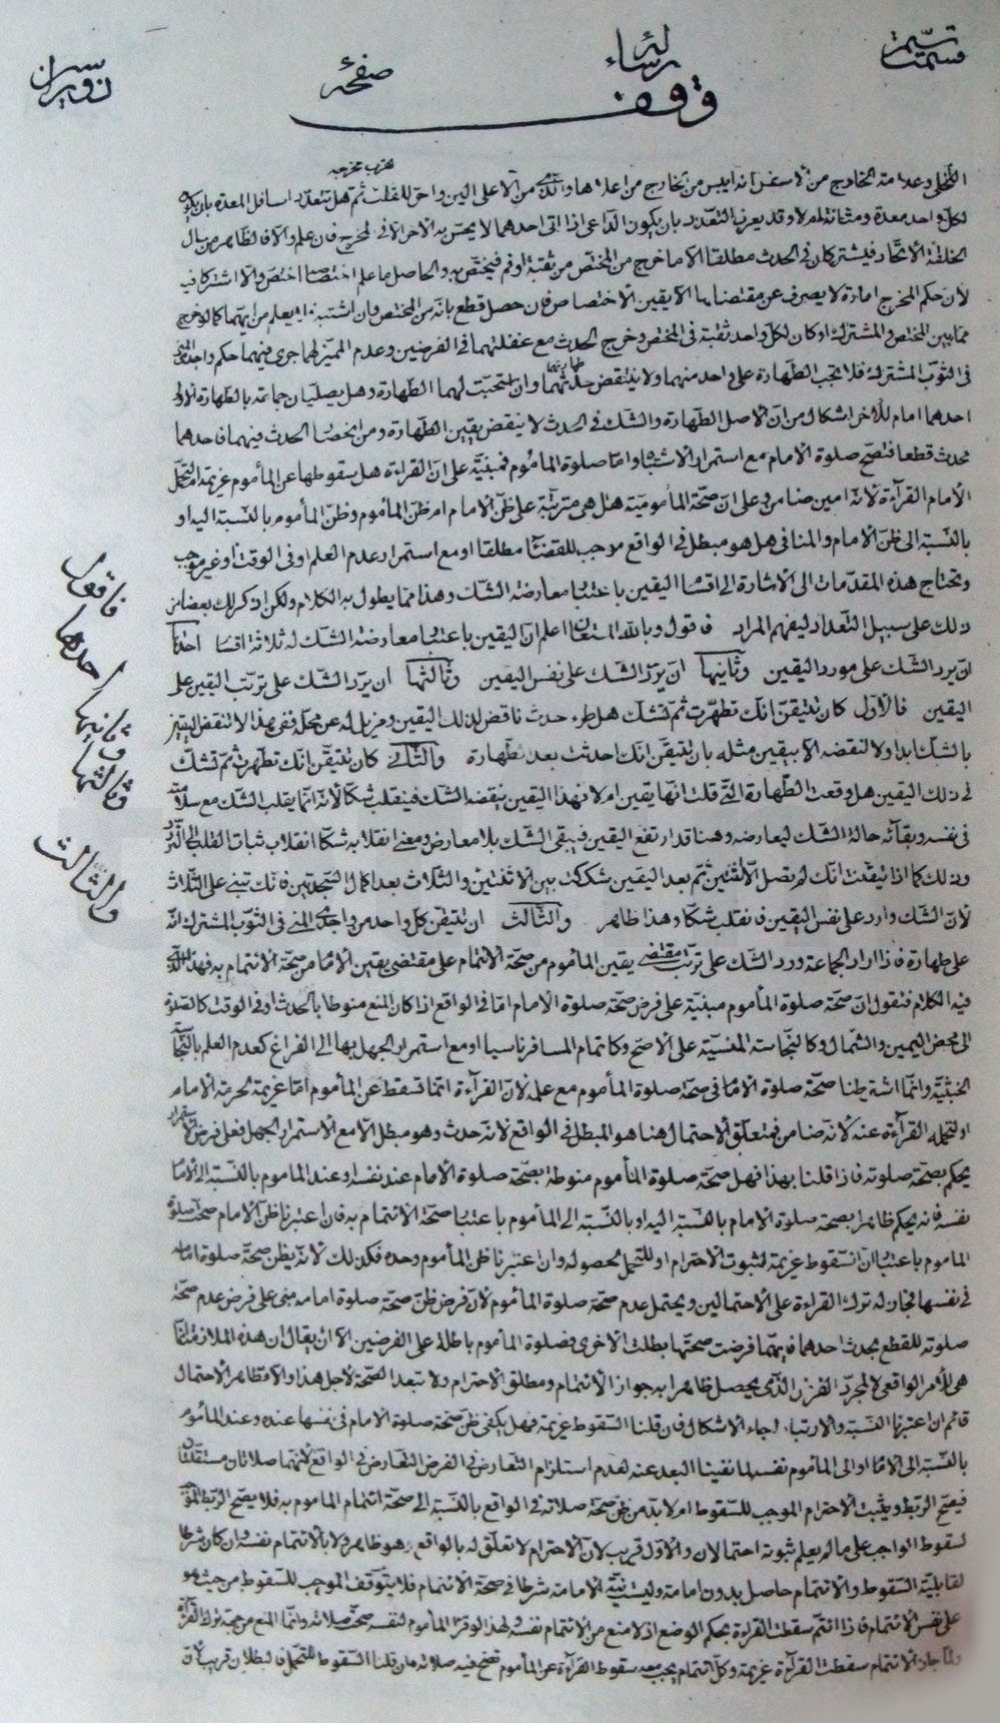 رسالة
صفحة
وقف
لكل واحد معدة ومثانة ام لا وقد يعرف التعدد بان يكون الداعي اذا اتى احدهما لا يحس به الآخر الا في المخرج فان علم والا فالظاهر من بال
الخلقة الاتحاد فيشتركان في الحدث مطلقا الا ما خرج من المختص من ثقبة او فم فيختص به والحاصل ما علم اختصاصا اختص والا اشتركا فيه
لان حكم المخرج امارة لا يصرف عن مقتضاها الا يقين الاختصاص فان حصل قطع بانه من المختص وان اشتبه
مما بين المختص والمشترك او كان لكل واحد ثقبة في المختص وخرج الحدث مع غفلتهما في الفرضين وعدم المميز لهما جرى فيهما حكم واجدى المنى
في الثوب المشترك فلا تجب الطهارة على واحد منهما ولا ينتقض وان استحبت لهما الطهارة وهل يصليان جماعة بالطهارة الاولى
احدهما امام للآخر اشكال من ان الاصل الطهارة والشك في الحدث لا ينقض يقين الطهارة ومن انحصار الحدث فيهما فاحدهما
محدث قطعا فتصح صلوة الامام مع استمرار الاشتباه واما صلوة المأموم فمبنية على ان القراءة هل سقوطها عن المأموم عزيمة ام لتحمل
الامام القراءة لانه امين ضامن وعلى ان صحة المأمومية هل هي مترتبة على ظن الامام ام ظن المأموم وظن المأموم بالنسبة اليه او
بالنسبة الى ظن الامام والمنافي هل هو مبطل في الواقع موجب للقضاء مطلقا او مع استمرار عدم العلم او في الوقت او غير موجب
وتحتاج هذه المقدمات الى الاشارة الى اقسام اليقين باعتبار معارضة الشك وهذا مما يطول به الكلام ولكن اذكر لك بعضا من
ذلك على سبيل التعداد ليفهم المراد فاقول وبالله المستعان اعلم ان اليقين باعتبار معارضة الشك له ثلاثة اقسام احدها
ان يرد الشك على مورد اليقين وثانيها ان يرد الشك على نفس اليقين وثالثها ان يرد الشك على ترتب اليقين على
اليقين فالاول كان تتيقن انك تطهرت ثم تشك هل طرء حدث ناقض لذلك اليقين ومزيل له عن محله ففي هذا لا تنقض اليقين
بالشك ابدا ولا تنقضه الا بيقين مثله بان تتيقن انك احدثت بعد الطهارة والثاني كان تتيقن انك تطهرت ثم تشك
في ذلك اليقين هل وقعت الطهارة التي قلت انها يقين ام لا فهذا اليقين ينقضه الشك فينقلب شكا لانه انما يقلب الشك مع سلامته
في نفسه وبقائه حالة الشك ليعارضه وهنا قد ارتفع اليقين فيبقى الشك بلا معارض ومعنى انقلابه شكا انقلاب ثبات القلب الى التردد
وذلك كما اذا تيقنت انك لم تصل الا ثنتين ثم بعد اليقين شككت بين الاثنتين والثلاث بعد اكمال السجدتين فانك تبني على الثلاث
لان الشك وارد على نفس اليقين فانقلب شكا وهذا ظاهر والثالث ان تتيقن كل واحد من واجدى المنى في الثوب المشترك انه
على طهارة فاذا اراد الجماعة ورد الشك على ترتب مقتضى يقين المأموم من صحة الائتمام على مقتضى يقين الامام من صحة الائتمام به فهذا الذي
فيه الكلام فنقول ان صحة صلوة المأموم مبنية على فرض صحة صلوة الامام اما في الواقع اذا كان المنع منوطا بالحدث او في الوقت كالصلوة
الى محض اليمين والشمال وكالنجاسة المنسية على الاصح وكاتمام المسافر ناسيا او مع استمرار الجهل بها الى الفراغ كعدم العلم بالنجاسة
الخبثية وانما اشترطنا صحة صلوة الامام في صحة صلوة المأموم مع علمه لان القراءة انما تسقط عن المأموم اما عزيمة لحرمة الامام
او لتحمله القراءة عنه لانه ضامن فمتعلق الاحتمال هنا هو المبطل في الواقع لانه حدث وهو مبطل الا مع الاستمرار الجهل فعلى فرض الاستمرار
يحكم بصحة صلوته فاذا قلنا بهذا فهل صحة صلوة المأموم منوطة بصحة صلوة الامام عند نفسه او عند المأموم بالنسبة الى الامام
نفسه فانه يحكم ظاهرا بصحة صلوة الامام بالنسبة اليه او بالنسبة الى المأموم باعتبار صحة الائتمام به فان اعتبرنا ظن الامام صحت صلوة
المأموم باعتبار ان السقوط عزيمة لثبوت الاحترام او للتحمل لحصوله وان اعتبرنا ظن المأموم وحده فكذلك لانه يظن صحة صلوة امامه
في نفسها فجاز له ترك القراءة على الاحتمالين ويحتمل عدم صحة صلوة المأموم لان فرض ظن صحة صلوة امامه مبنى على فرض عدم صحة
صلوته للقطع بحدث احدهما فايهما فرضت صحتها بطلت الاخرى فصلوة المأموم باطلة على الفرضين الا ان يقال ان هذه الملازمة انما
هي للأمر الواقعي لا لمجرد الفرض الذي يحصل ظاهرا به جواز الائتمام ومطلق الاحترام ولا تبعد الصحة لاجل هذا والا فظاهر الاحتمال
قائم ان اعتبرنا النسبة والارتباط جاء الاشكال فان قلنا السقوط عزيمة فهل يكفي ظن صحة صلوة الامام في نفسها عنده وعند المأموم
بالنسبة الى الامام او الى المأموم نفسه لما نفينا البعد عنه لعدم استلزام التعارض في الفرض التعارض في الواقع لانهما صلاتان مستقلتان
فيصح الربط ويثبت الاحترام الموجب للسقوط ام لا بد من ظن صحة صلاته في الواقع بالنسبة الى صحة ائتمام المأموم به فلا يصح الربط الموجب
لسقوط الواجب على ما لم يعلم ثبوته احتمالان والاول قريب لان الاحترام لا تعلق له بالواقع وهو ظاهر ولا بالائتمام نفسه وان كان شرطا
لقابلية السقوط والائتمام حاصل بدون امامة وليست نية الامامة شرطا في صحة الائتمام فلا يتوقف الموجب للسقوط من حيث هو
على نفس الائتمام فاذا ائتم سقطت القراءة بحكم الوضع اذ لا منع من الائتمام نفسه ولهذا لو قرأ المأموم لنفسه صحت صلاته وانما المنع من جهة ترك القراءة
الائتمام سقطت القراءة عزيمة وكل ائتمام يجب معه سقوط القراءة عن المأموم تصح فيه صلاته فان قلنا السقوط للتحمل فالبطلان قريب لان
فاقول
احدها
وثانيها
وثالثها
والثالث